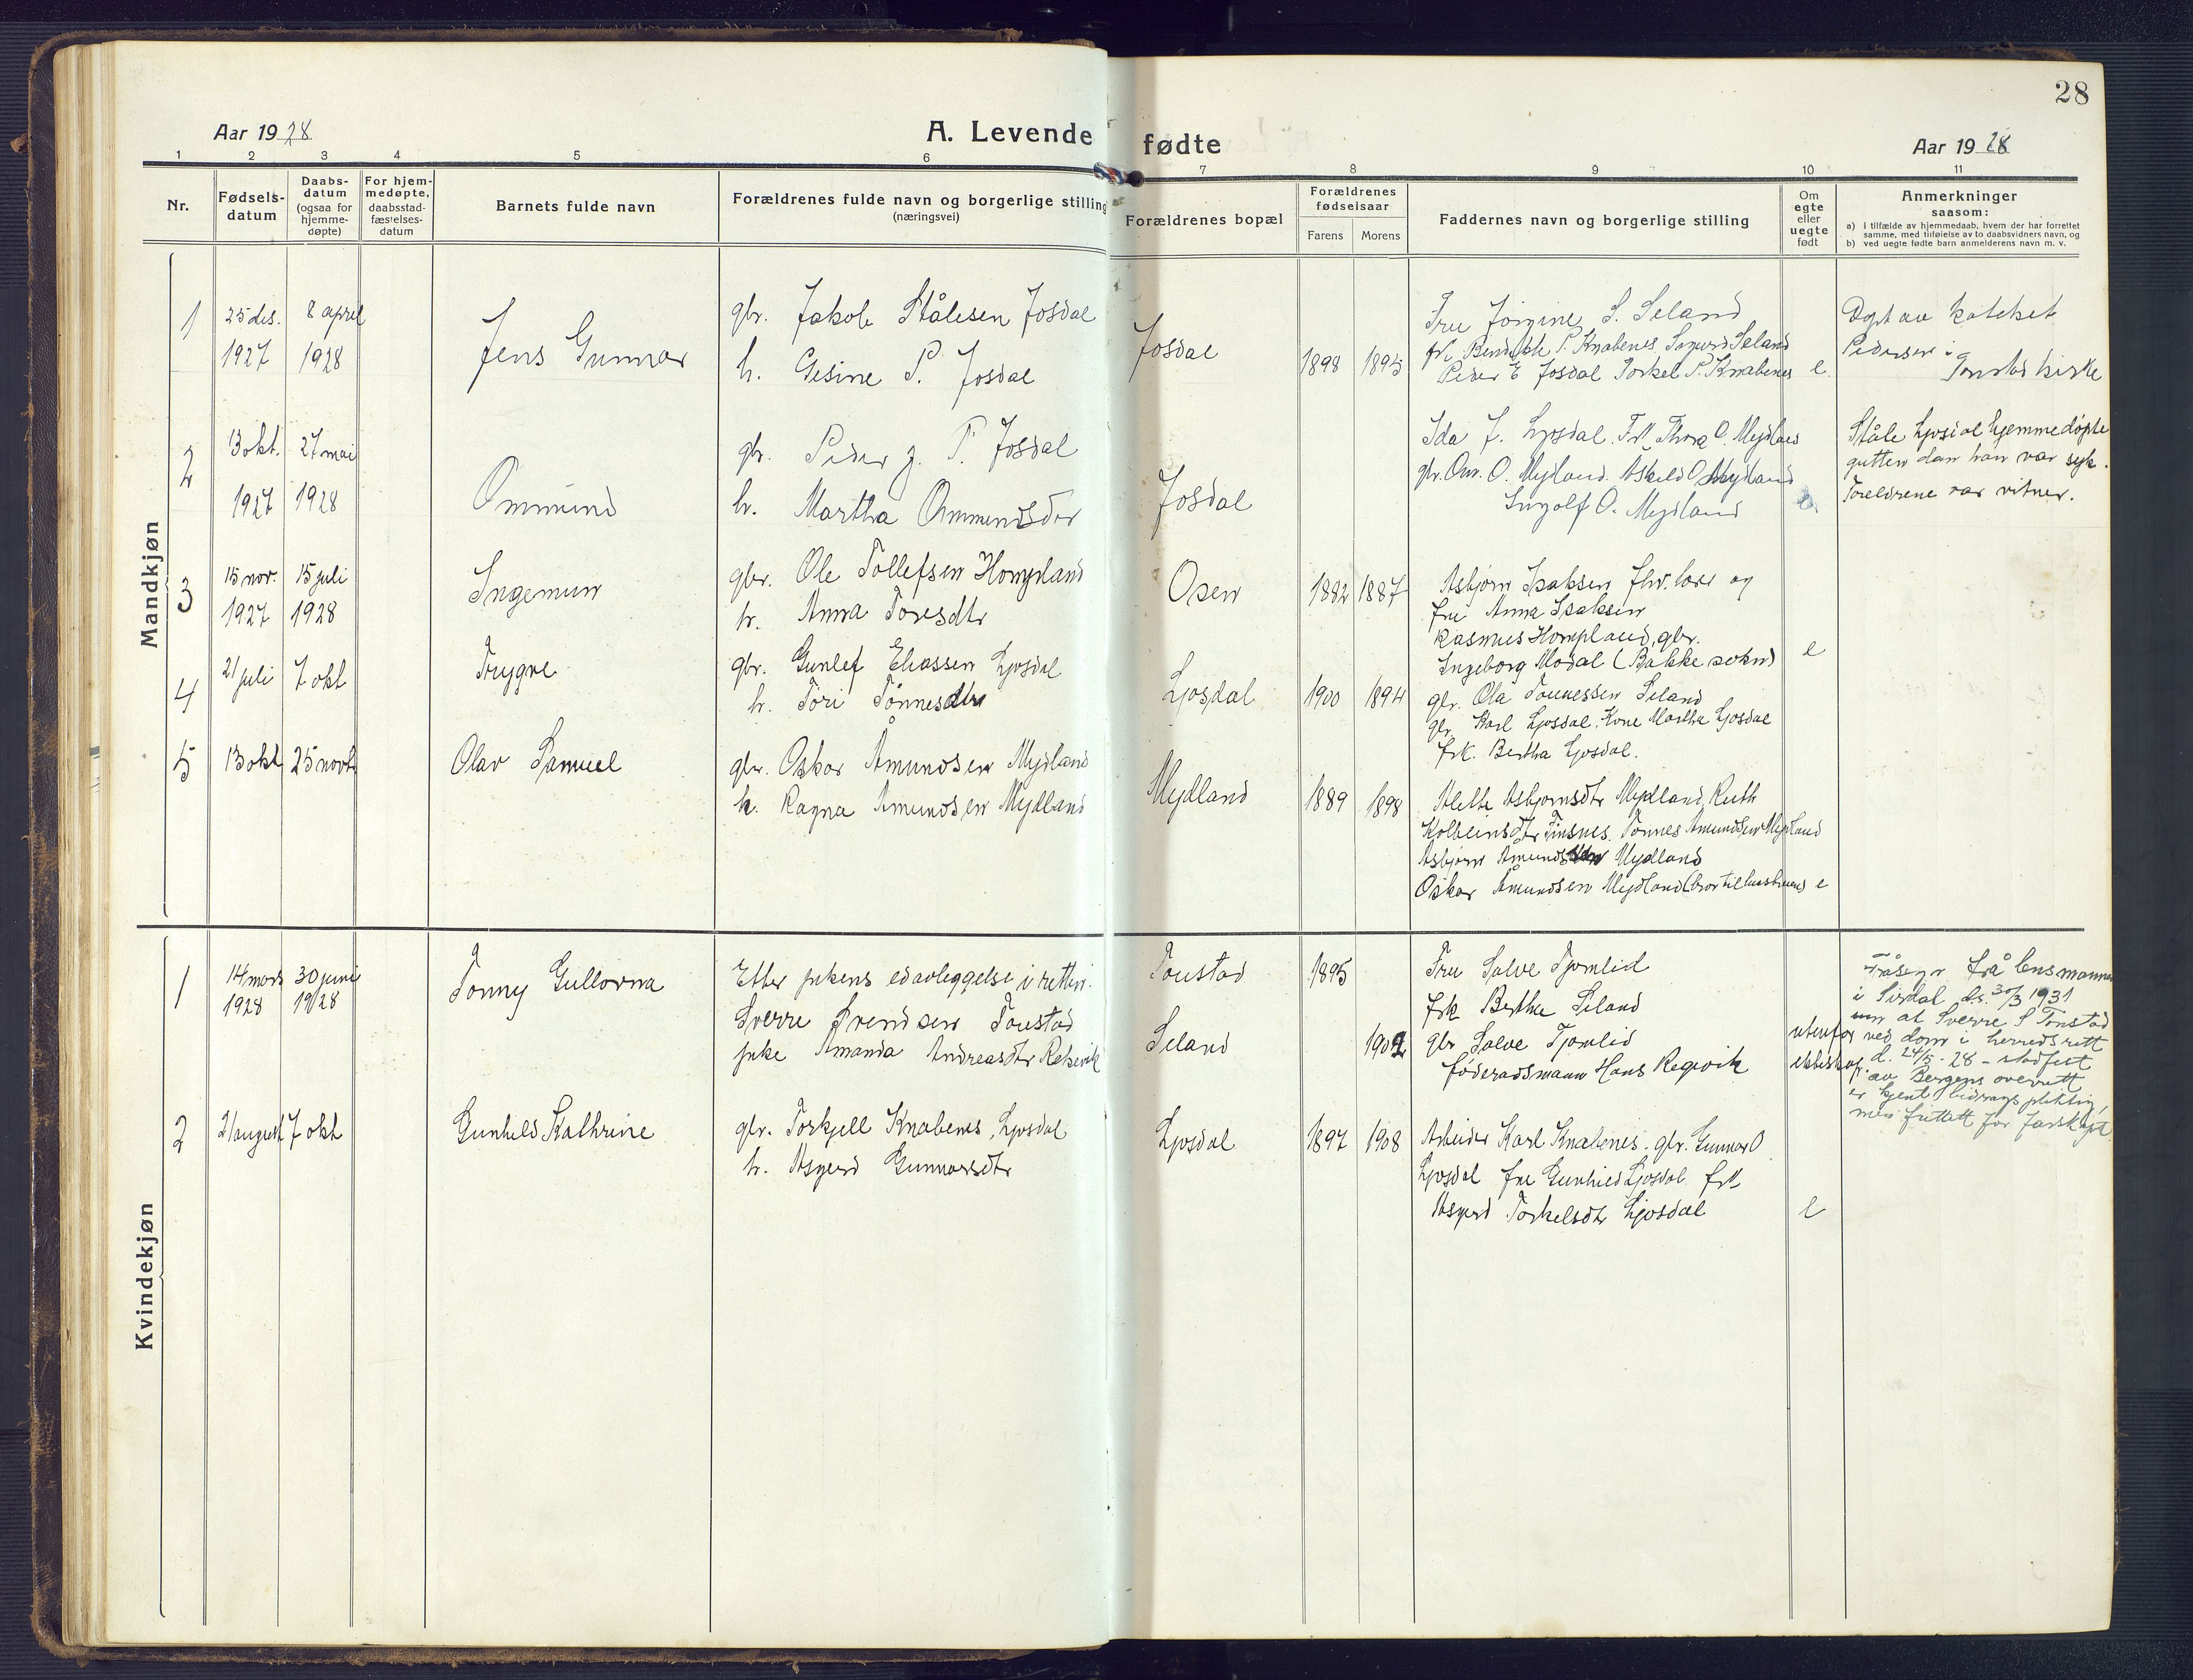 28
Aar 1928
A. Levende fødte
Aar 1928
1 2 3 4 5 6 7 8 9 10 11
Nr.
Fødsels-
datum
Daabs-
datum
(ogsaa for
hjemme-
døpte)
For hjem-
medøpte,
daabsstad-
fæstelses-
datum
Barnets fulde navn
Forældrenes fulde navn og borgerlige stilling
(næringsvei)
Forældrenes bopæl
Forældrenes
fødselsaar
Farens
Morens
Faddernes navn og borgerlige stilling
Om
egte
eller
uegte
født
Anmerkninger
saasom:
a) i tilfælde av hjemmedaab, hvem der har forrettet
samme, med tilføielse av to daabsvidners navn, og
b) ved uegte fødte barn anmelderens navn m. v.
Mandkjøn
1
25 des.
1927
8 april
1928
Jens Gunnar
gbr. Jakob Stålesen Josdal
h. Gesine P. Josdal
Josdal
1898
1895
Fru Jorgine S. Seland
frk. P. Knabenes Seland
Peder E Josdal Torkel P. Knabenes
e.
Døpt av katekets
Pedersen i
Tonstad kirke
2
13 okt.
1927
27 mai
1928
Ommund
gbr. Peder P. Josdal
h. Martha Ommundsdtr
Josdal
Ida J. Ljosdal. Frk Thora O. Mydland
gbr. Om. O. Mydland. Askild O Mydland
Ingolf O. Mydland
e.
Ståle Ljosdal hjemmedøpte
gutten dan han var syk.
Foreldrene var vitner.
3
15 nov.
1927
15 juli
1928
Ingemun
gbr. Ole Tollefsen Hompland
h. Anna Toresdtr
Osen
1882
1887
Asbjørn Isaksen og
fru Anna Isaksen
Rasmus Hompland, gbr.
Ingeborg Modal (Bakke sokn)
e
4
21 juli
7 okt
Trygve
gbr. Gunlef Eliassen Ljosdal
h. Tori Tønnesdtr
Ljosdal
1900
1894
gbr. Ola Tønnessen Seland
gbr. Karl Ljosdal. Kone Martha Ljosdal
frk. Bertha Ljosdal.
5
13 okt
25 novb
Olav Samuel
gbr. Oskar Åmundsen Mydland
h. Ragna Amundsen Mydland
Mydland
1889
1898
Alette Asbjornsdtr Mydland, Ruth
Kolbeinsdtr Finsnes. Tønnes Amundsen Mydland
Asbjørn Mydland
Oskar Åmundsen Mydland (bror til husbruen)
e
Kvindekjøn
1
14 mars
1928
30 juni
1928
Tonny Gullorna
Etter pikens edavleggelse i retten.
Sverre Svendsen Tonstad
pike Amanda Andreasdtr Rekevik
Tonstad
Seland
1895
1902
Fru Salve Tjomlid
frk Bertha Seland
gbr Salve Tjomlid
føderaadsmann Hans Regevik
utenfor
ekteskap.
Fråsegn frå lensmannen
i Sirdal d.s. 30/3 1931
um at Sverre S Tonstad
ved dom i herredsrett
d. 24/5 - 28 - stadfest
av Bergens overrett
er kjent bidrags pliktig,
men frittatt for farskapt.
2
21 august
7 okt
Gunhild Kathrine
gbr. Torkjell Knabenes, Ljosdal
h. Asgerd Gunnarsdtr
Ljosdal
1897
1908
Arbeider Karl Knabenes. gbr. Gunnar O
Ljosdal fru Gunhild Ljosdal frk
Asgerd Torkelsdtr Ljosdal
e